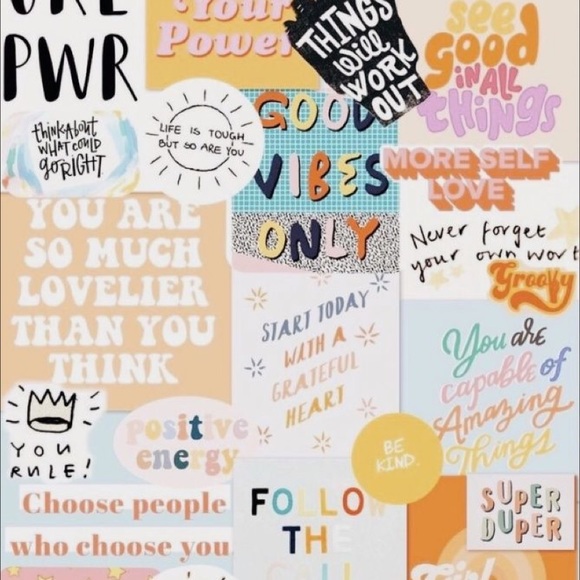 PWR
Your
Power
THINGS
Will
WORK
OUT
see
good
IN ALL
things
thinkAbout
WHAT COULD
goRIGHT.
LIFE IS TOUGH
BUT SO ARE YOU
GOOD
VIBES
ONLY
MORE SELF
LOVE
Never forget
your own wort
Groovy
YOU ARE
SO MUCH
LOVELIER
THAN YOU
THINK
START TODAY
WITH A
GRATEFUL
HEART
You are
capable of
Amazing
Things
YOU
RULE!
positive
energy
BE
KIND.
Choose people
who choose you
FOLLOW
THE
SUPER
DUPER